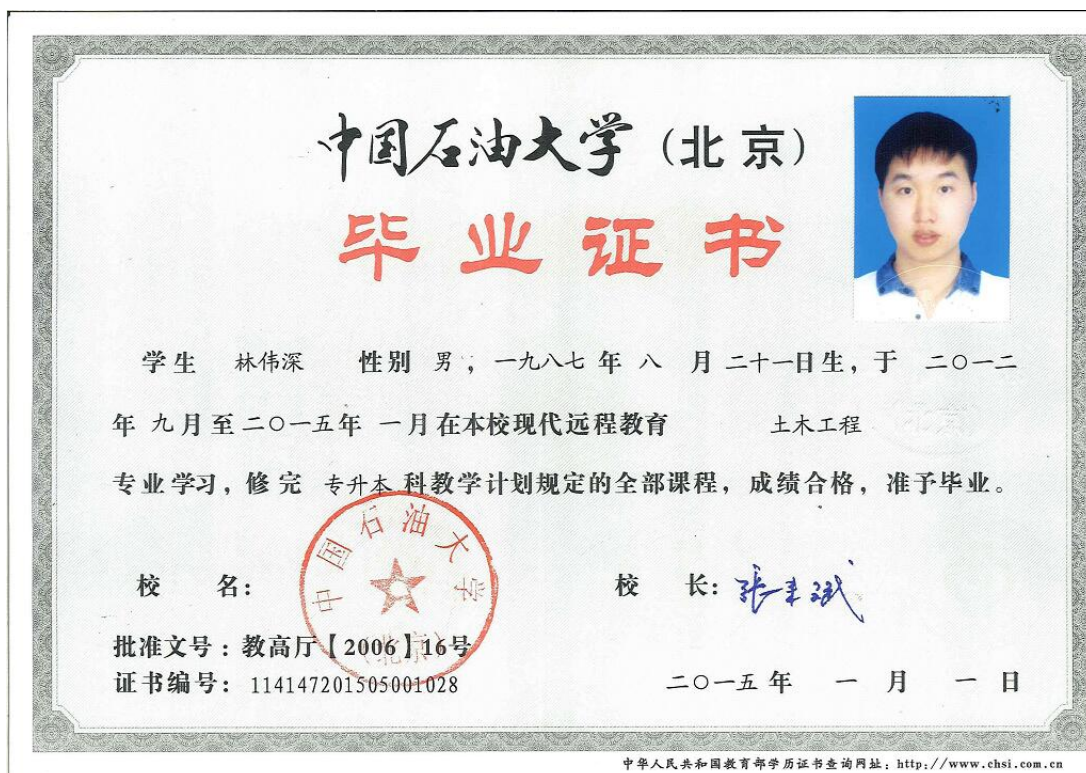 中国石油大学（北京）
毕业证书
学生 林伟深 性别 男，一九八七年 八 月 二十一日生，于 二〇一二
年 九月至二〇一五年 一月在本校现代远程教育 土木工程
专业学习，修完 专升本 科教学计划规定的全部课程，成绩合格，准予毕业。
校 名：
中国石油大学
（北京）
校 长：张来斌
批准文号：教高厅【2006】16号
证书编号：114147201505001028
二〇一五年 一 月 一 日
中华人民共和国教育部学历证书查询网址：http://www.chsi.com.cn